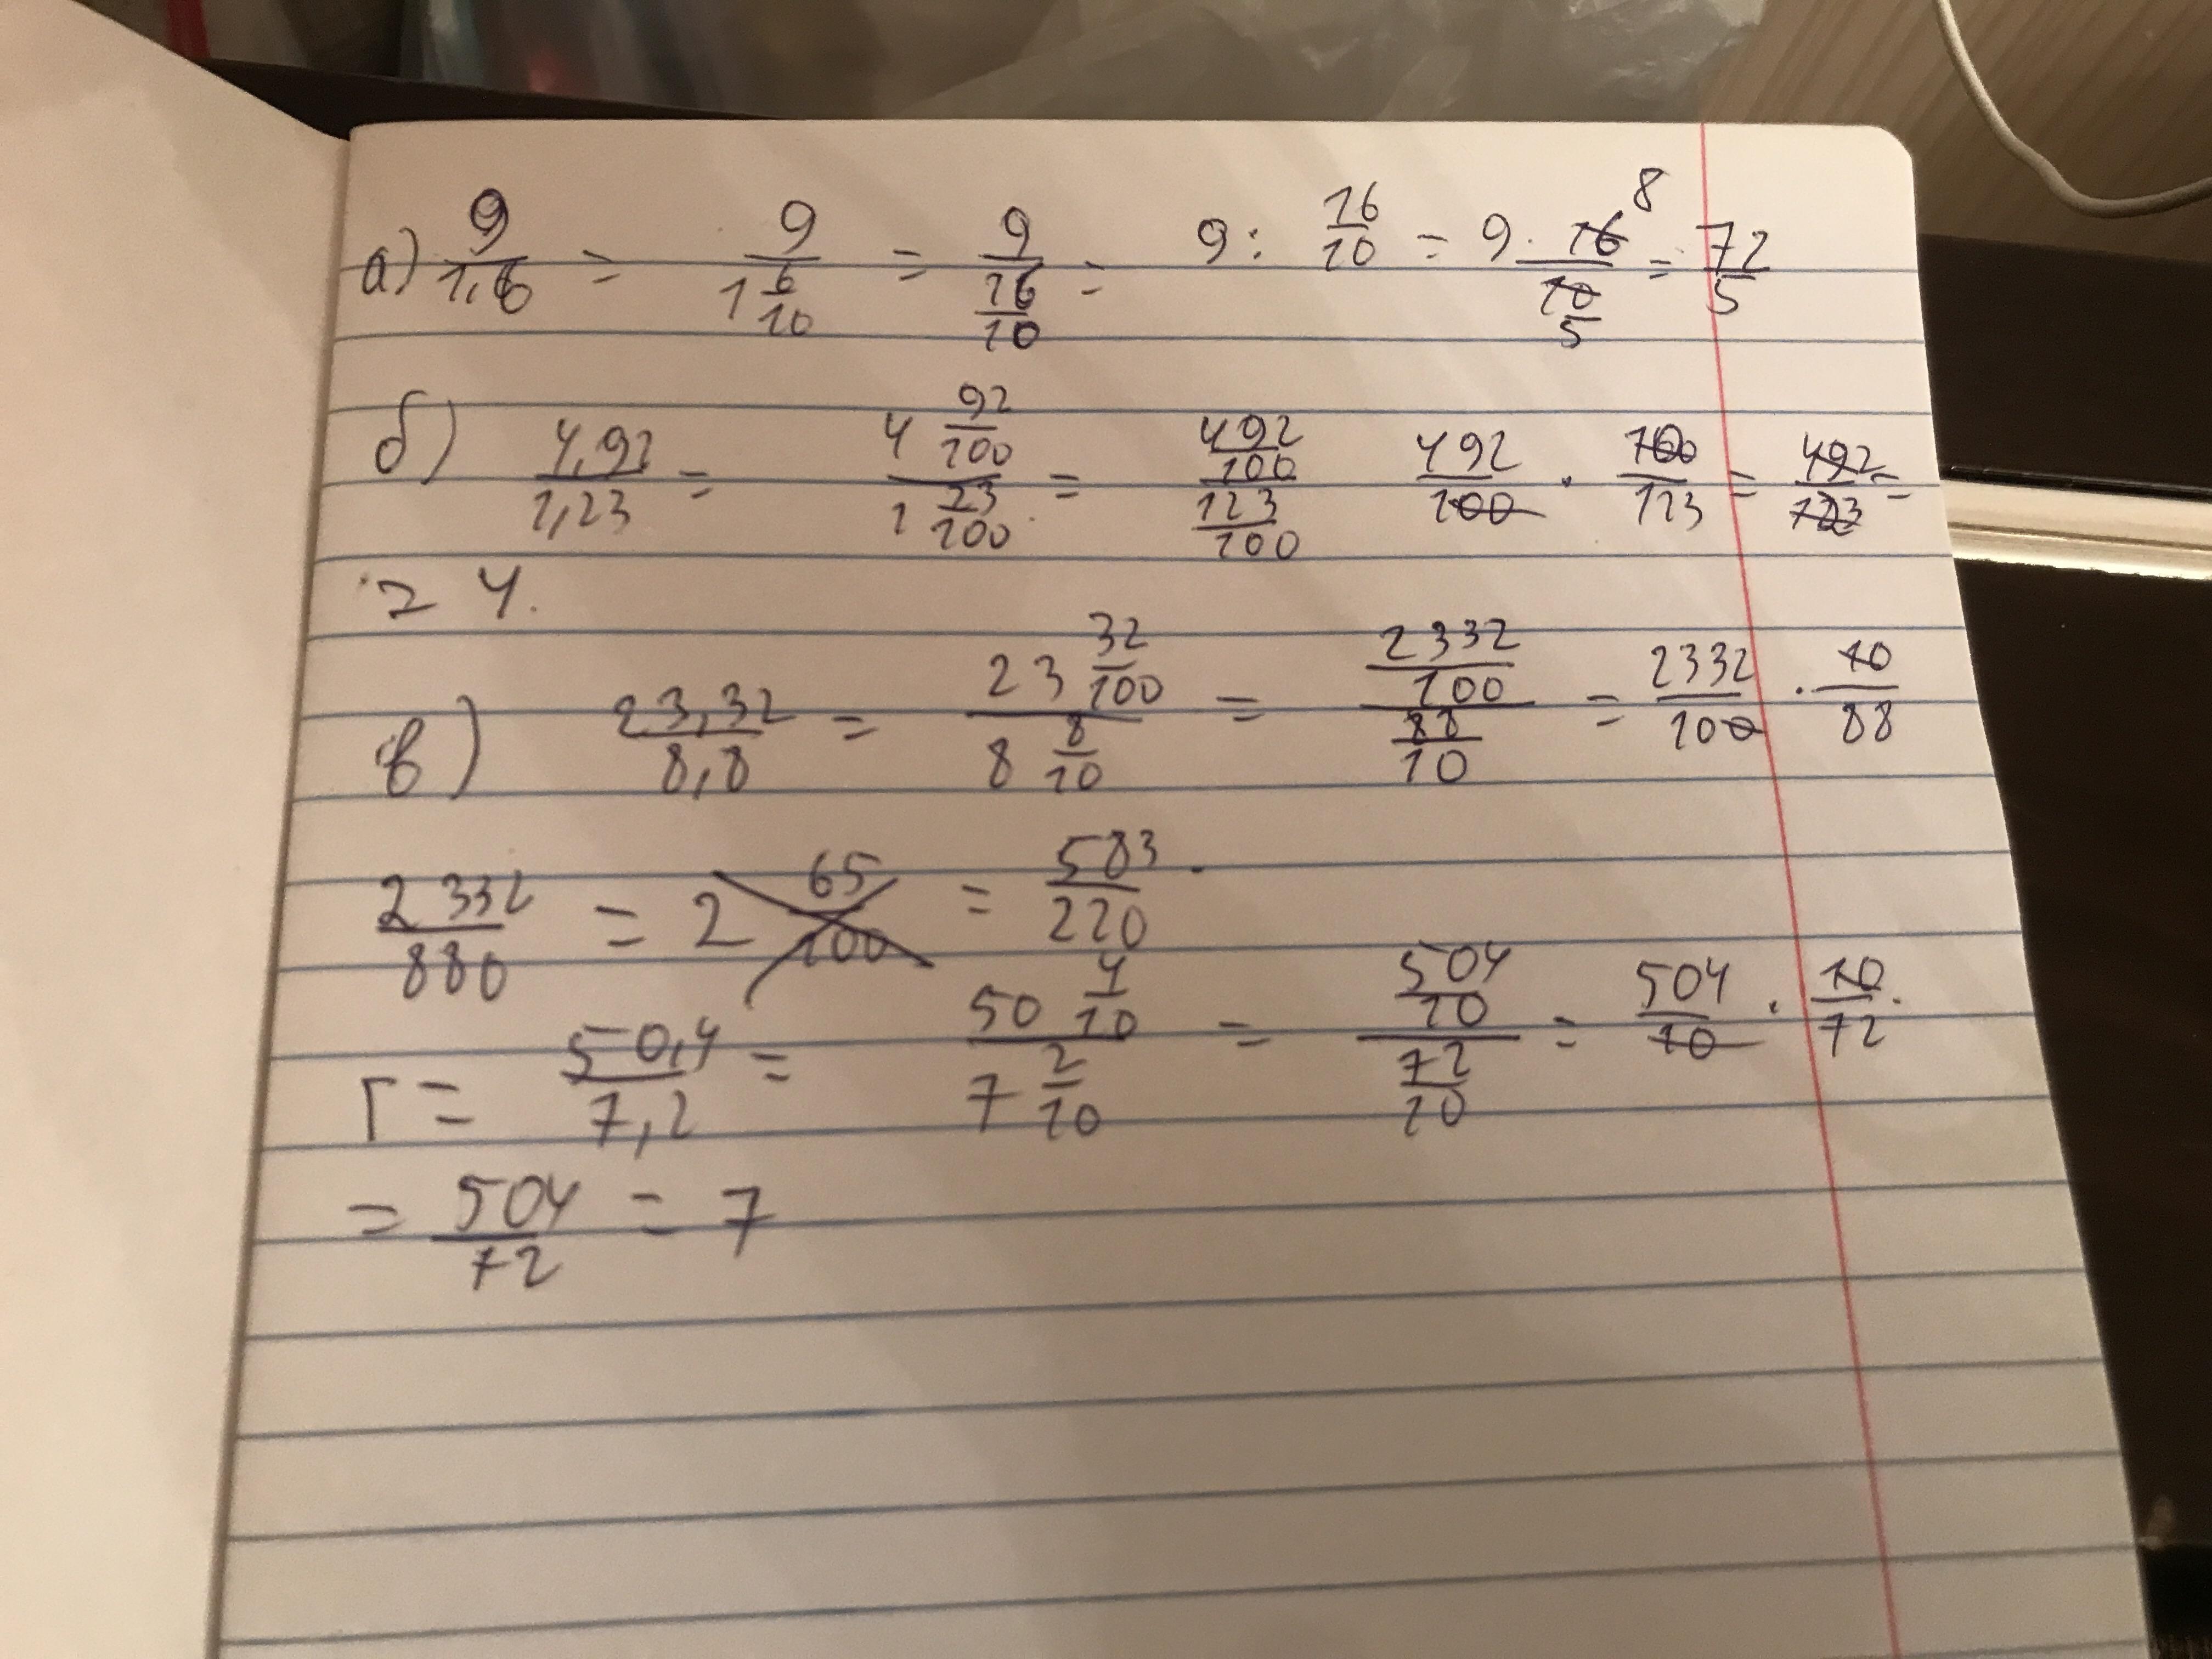 а) 9/1,6 = 9/(1 6/10) = 9/(16/10) = 9 : 16/10 = 9 · 16/10 8 5 = 72/5
б) 4,92/1,23 = (4 92/100)/(1 23/100) = (492/100)/(123/100) 492/100 · 100/123 = 492/123 =
= 4.
в) 23,32/8,8 = (23 32/100)/(8 8/10) = (2332/100)/(88/10) = 2332/100 · 10/88
2332/880 = 2 65/100 = 583/220 .
г = 50,4/7,2 = (50 4/10)/(7 2/10) = (504/10)/(72/10) = 504/10 · 10/72 .
= 504/72 = 7